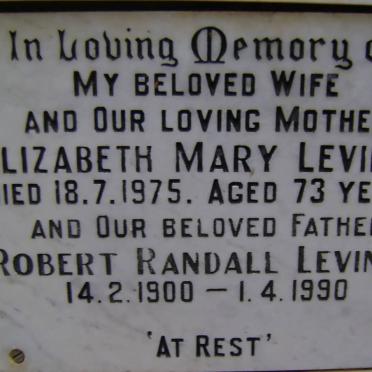 In Loving Memory o
MY BELOVED WIFE
AND OUR LOVING MOTHE
LIZABETH MARY LEVI
IED 18.7.1975. AGED 73 YE
AND OUR BELOVED FATHE
ROBERT RANDALL LEVIN
14.2.1900 – 1.4.1990
'AT REST'